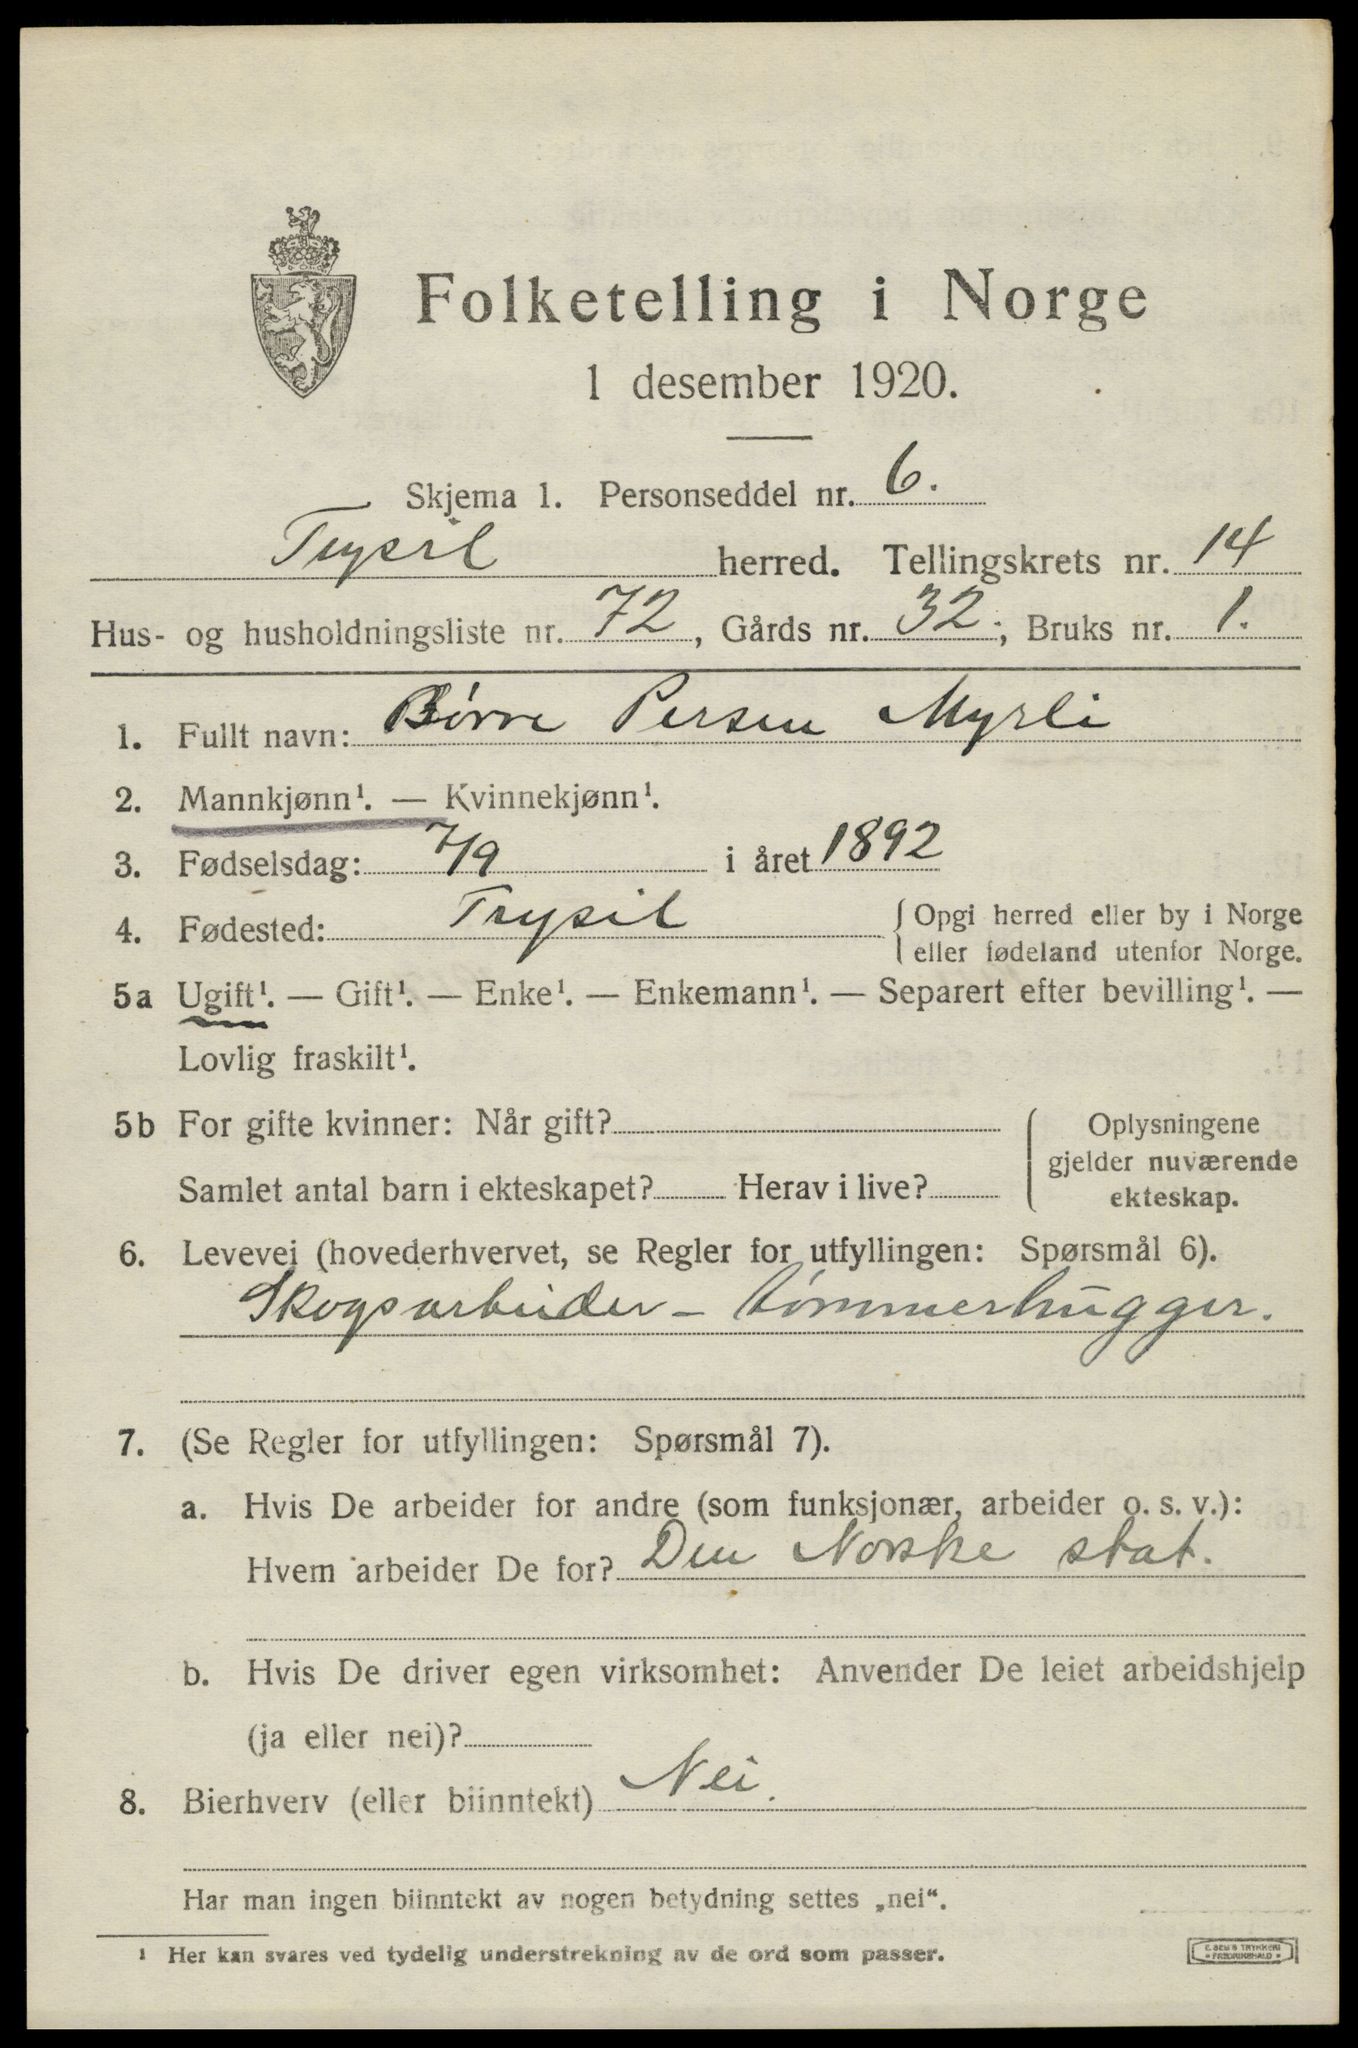 Folketelling i Norge
1 desember 1920.
Skjema 1. Personseddel nr. 6.
Trysil herred. Tellingskrets nr. 14
Hus- og husholdningsliste nr. 72, Gårds nr. 32; Bruks nr. 1.
1. Fullt navn: Børre Persen Myrli
2. Mannkjønn¹. — Kvinnekjønn¹.
3. Fødselsdag: 7/9 i året 1892
4. Fødested: Trysil { Opgi herred eller by i Norge
eller fødeland utenfor Norge.
5a Ugift¹. — Gift¹. — Enke¹. — Enkemann¹. — Separert efter bevilling¹. —
Lovlig fraskilt¹.
5b For gifte kvinner: Når gift?
Samlet antal barn i ekteskapet? Herav i live?
Oplysningene
gjelder nuværende
ekteskap.
6. Levevei (hovederhvervet, se Regler for utfyllingen: Spørsmål 6).
Skogsarbeider - tømmerhugger.
7. (Se Regler for utfyllingen: Spørsmål 7).
a. Hvis De arbeider for andre (som funksjonær, arbeider o. s. v.):
Hvem arbeider De for? Den Norske stat.
b. Hvis De driver egen virksomhet: Anvender De leiet arbeidshjelp
(ja eller nei)?
8. Bierhverv (eller biinntekt) Nei.
Har man ingen biinntekt av nogen betydning settes „nei“.
¹ Her kan svares ved tydelig understrekning av de ord som passer.
E. SEM'S TRYKKERI
FREDRIKSHALD